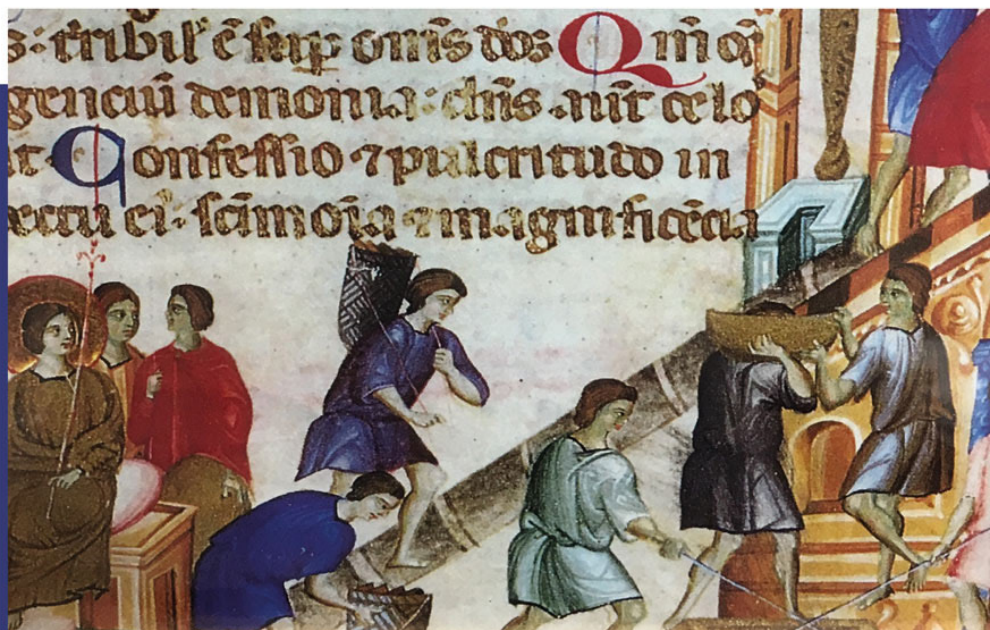 s: tribil' ē sup omīs dos Qm̄ oī
genciū demonia: dn̄s .aut̄ celo
it. Confessio ⁊ pulcritudo in
ectu ei': sc̄imoīa ⁊ magnificēcia